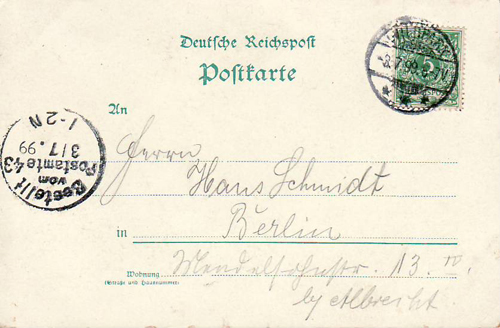 Deutsche Reichspost
Postkarte
5
An
Herrn
Hans Schmidt
in Berlin
Wohnung Mendelssohnstr. 13. IV.
(Straße und Hausnummer)
by Albrecht
Bestellt
vom
Postamte 43
3/7.99
1-2N